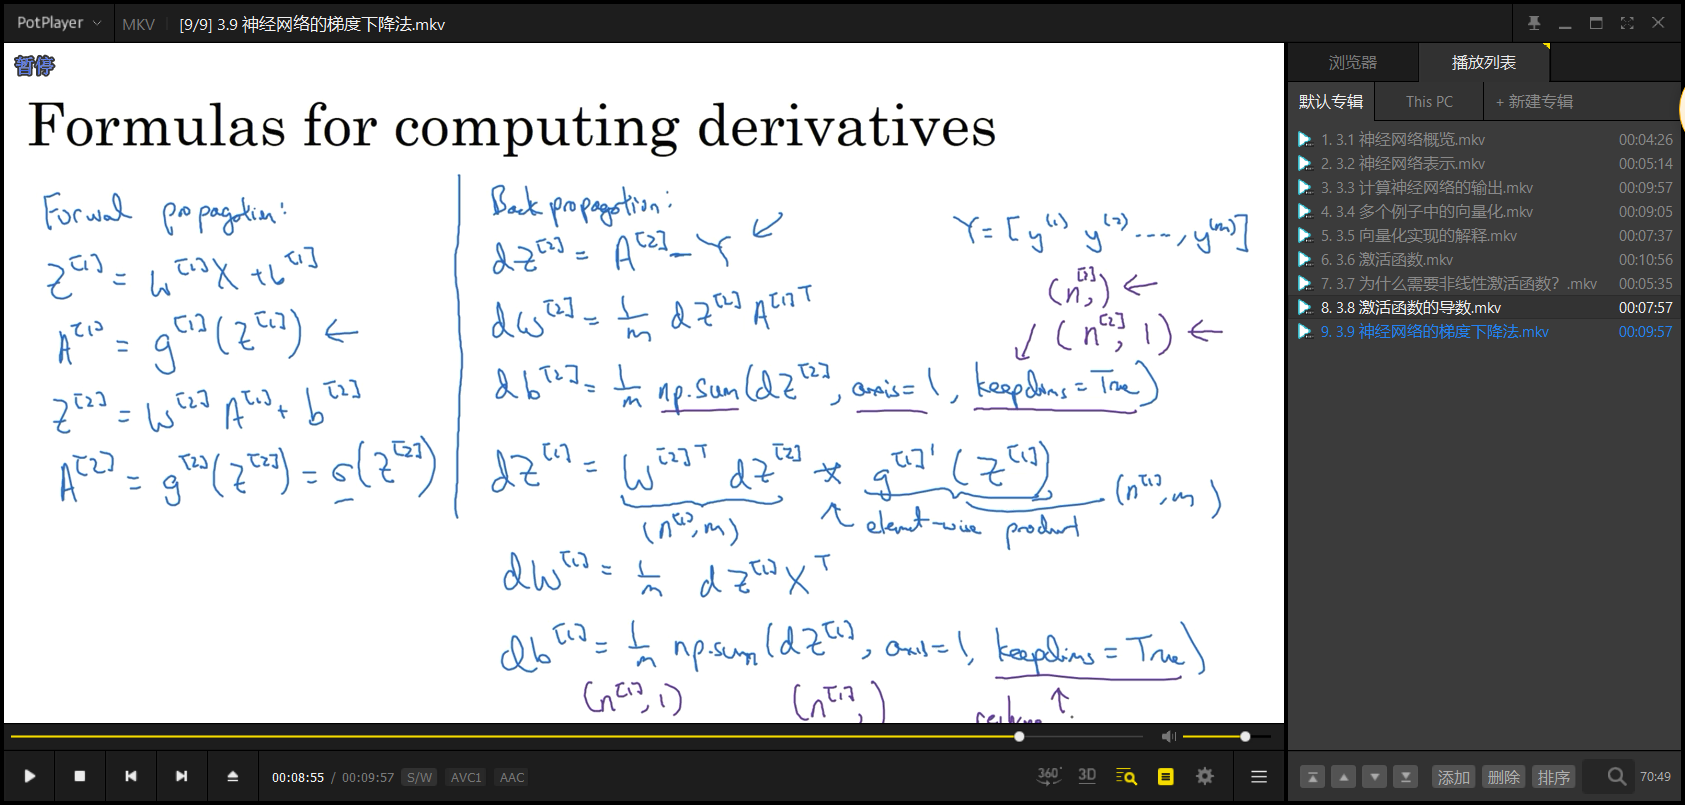 PotPlayer MKV [9/9] 3.9 神经网络的梯度下降法.mkv
暂停
Formulas for computing derivatives
Forward propagation:
Z^[1] = W^[1] X + b^[1]
A^[1] = g^[1](Z^[1]) ←
Z^[2] = W^[2] A^[1] + b^[2]
A^[2] = g^[2](Z^[2]) = σ(Z^[2])
Back propagation:
dZ^[2] = A^[2] - Y ↙
Y = [y^(1) y^(2) ...., y^(m)]
dW^[2] = 1/m dZ^[2] A^[1]T
(n^[2],) ←
(n^[2], 1) ←
db^[2] = 1/m np.sum(dZ^[2], axis=1, keepdims=True)
dZ^[1] = W^[2]T dZ^[2] * g^[1]'(Z^[1])
(n^[1], m) element-wise product (n^[1], m)
dW^[1] = 1/m dZ^[1] X^T
db^[1] = 1/m np.sum(dZ^[1], axis=1, keepdims=True)
(n^[1], 1) (n^[1],)
00:08:55 / 00:09:57 S/W AVC1 AAC
360° 3D
浏览器 播放列表
默认专辑 This PC + 新建专辑
1. 3.1 神经网络概览.mkv 00:04:26
2. 3.2 神经网络表示.mkv 00:05:14
3. 3.3 计算神经网络的输出.mkv 00:09:57
4. 3.4 多个例子中的向量化.mkv 00:09:05
5. 3.5 向量化实现的解释.mkv 00:07:37
6. 3.6 激活函数.mkv 00:10:56
7. 3.7 为什么需要非线性激活函数？.mkv 00:05:35
8. 3.8 激活函数的导数.mkv 00:07:57
9. 3.9 神经网络的梯度下降法.mkv 00:09:57
添加 删除 排序 70:49